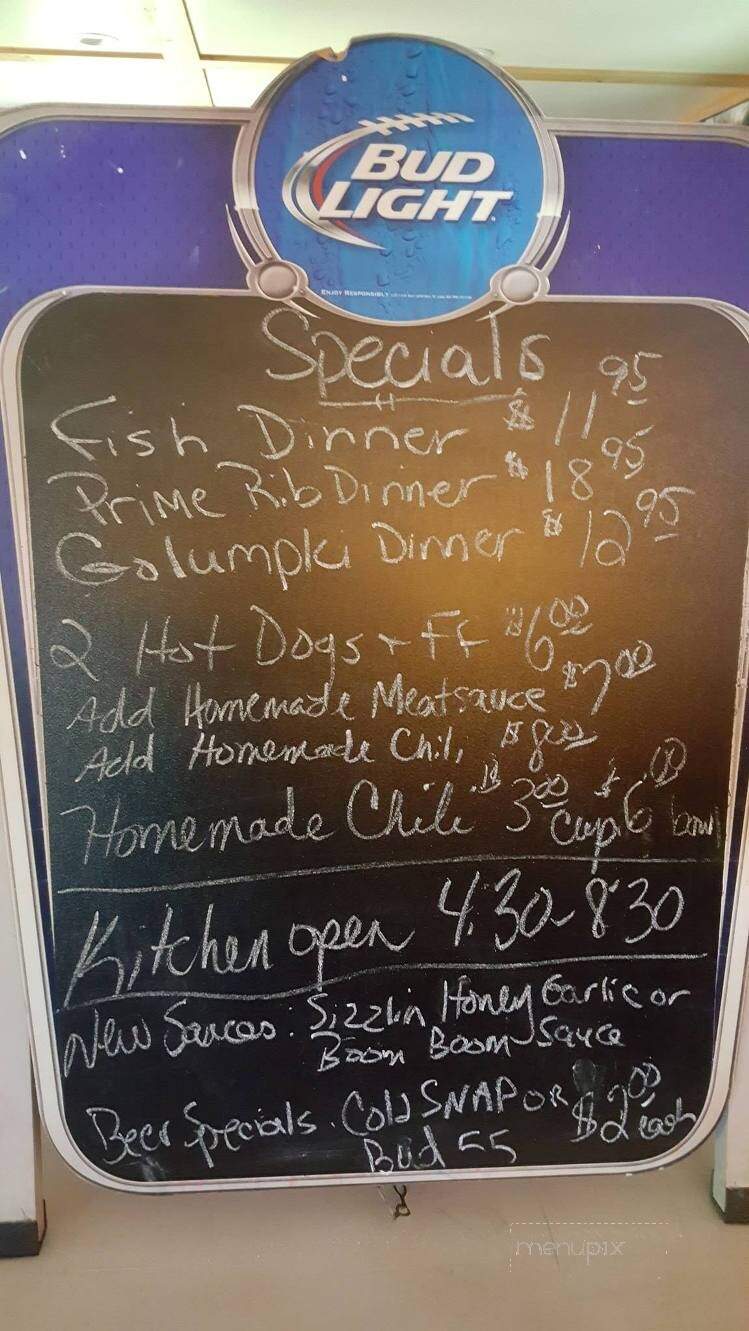 BUD
LIGHT
ENJOY RESPONSIBLY
Specials
Fish Dinner $11.95
Prime Rib Dinner $18 95
Golumpki Dinner $12 95
2 Hot Dogs + FF $6 00
Add Homemade Meatsauce $7 00
Add Homemade Chili $8 00
Homemade Chili $3 00 cup $6 00 bowl
Kitchen open 4:30-8:30
New Sauces: Sizzlin Honey Garlic or
Boom Boom Sauce
Beer Specials. Cold SNAP OR $2 00 each
Bud 55
menupix